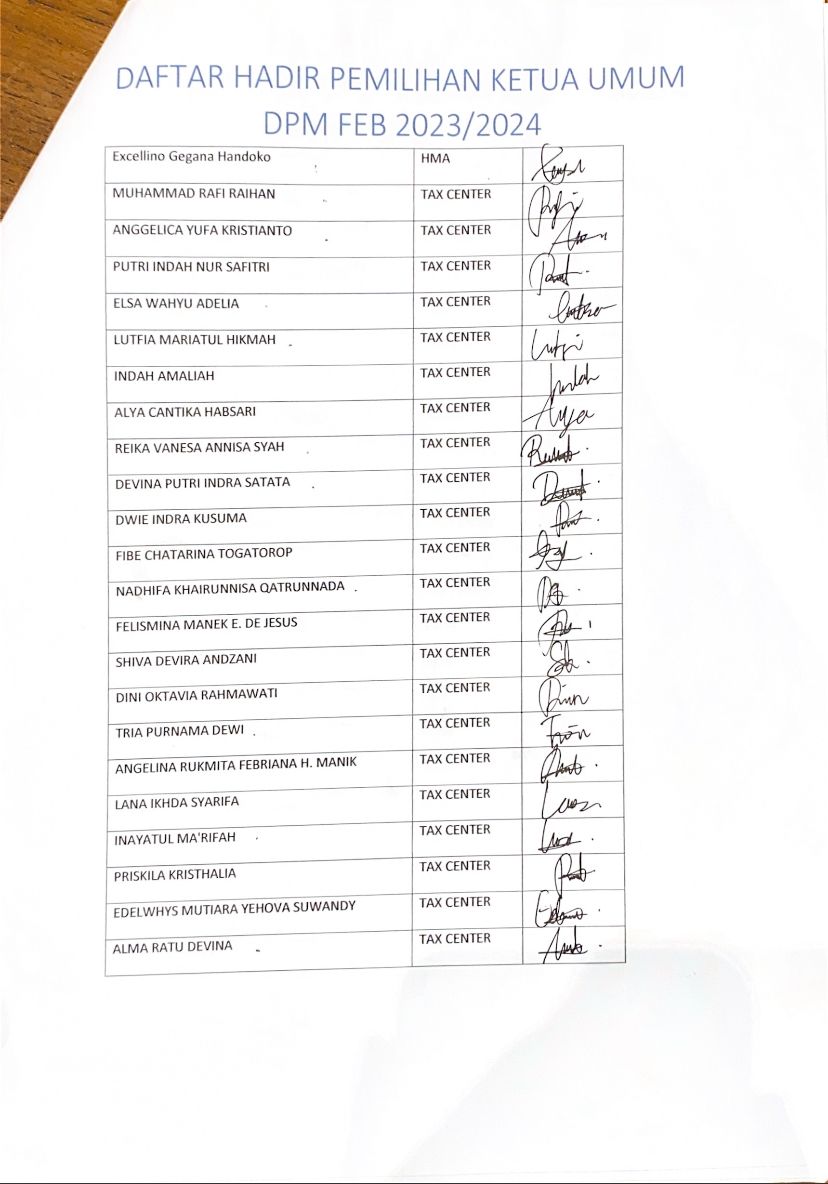 DAFTAR HADIR PEMILIHAN KETUA UMUM
DPM FEB 2023/2024
Excellino Gegana Handoko HMA
MUHAMMAD RAFI RAIHAN TAX CENTER Rafi
ANGGELICA YUFA KRISTIANTO TAX CENTER
PUTRI INDAH NUR SAFITRI TAX CENTER
ELSA WAHYU ADELIA TAX CENTER
LUTFIA MARIATUL HIKMAH TAX CENTER Lutfi
INDAH AMALIAH TAX CENTER Indah
ALYA CANTIKA HABSARI TAX CENTER Alya
REIKA VANESA ANNISA SYAH TAX CENTER
DEVINA PUTRI INDRA SATATA TAX CENTER
DWIE INDRA KUSUMA TAX CENTER
FIBE CHATARINA TOGATOROP TAX CENTER
NADHIFA KHAIRUNNISA QATRUNNADA TAX CENTER
FELISMINA MANEK E. DE JESUS TAX CENTER
SHIVA DEVIRA ANDZANI TAX CENTER
DINI OKTAVIA RAHMAWATI TAX CENTER
TRIA PURNAMA DEWI TAX CENTER
ANGELINA RUKMITA FEBRIANA H. MANIK TAX CENTER
LANA IKHDA SYARIFA TAX CENTER
INAYATUL MA'RIFAH TAX CENTER
PRISKILA KRISTHALIA TAX CENTER
EDELWHYS MUTIARA YEHOVA SUWANDY TAX CENTER
ALMA RATU DEVINA TAX CENTER